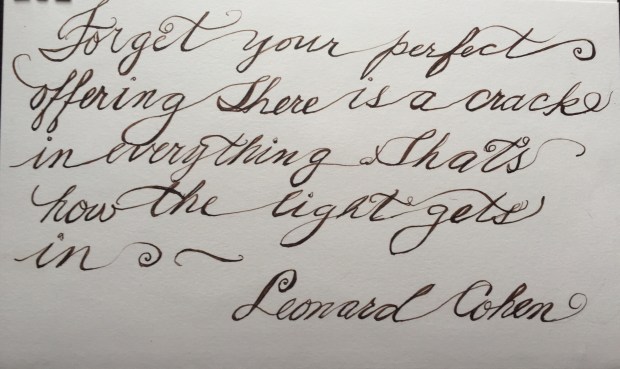 Forget your perfect
offering There is a crack
in everything. That's
how the light gets
in
Leonard Cohen